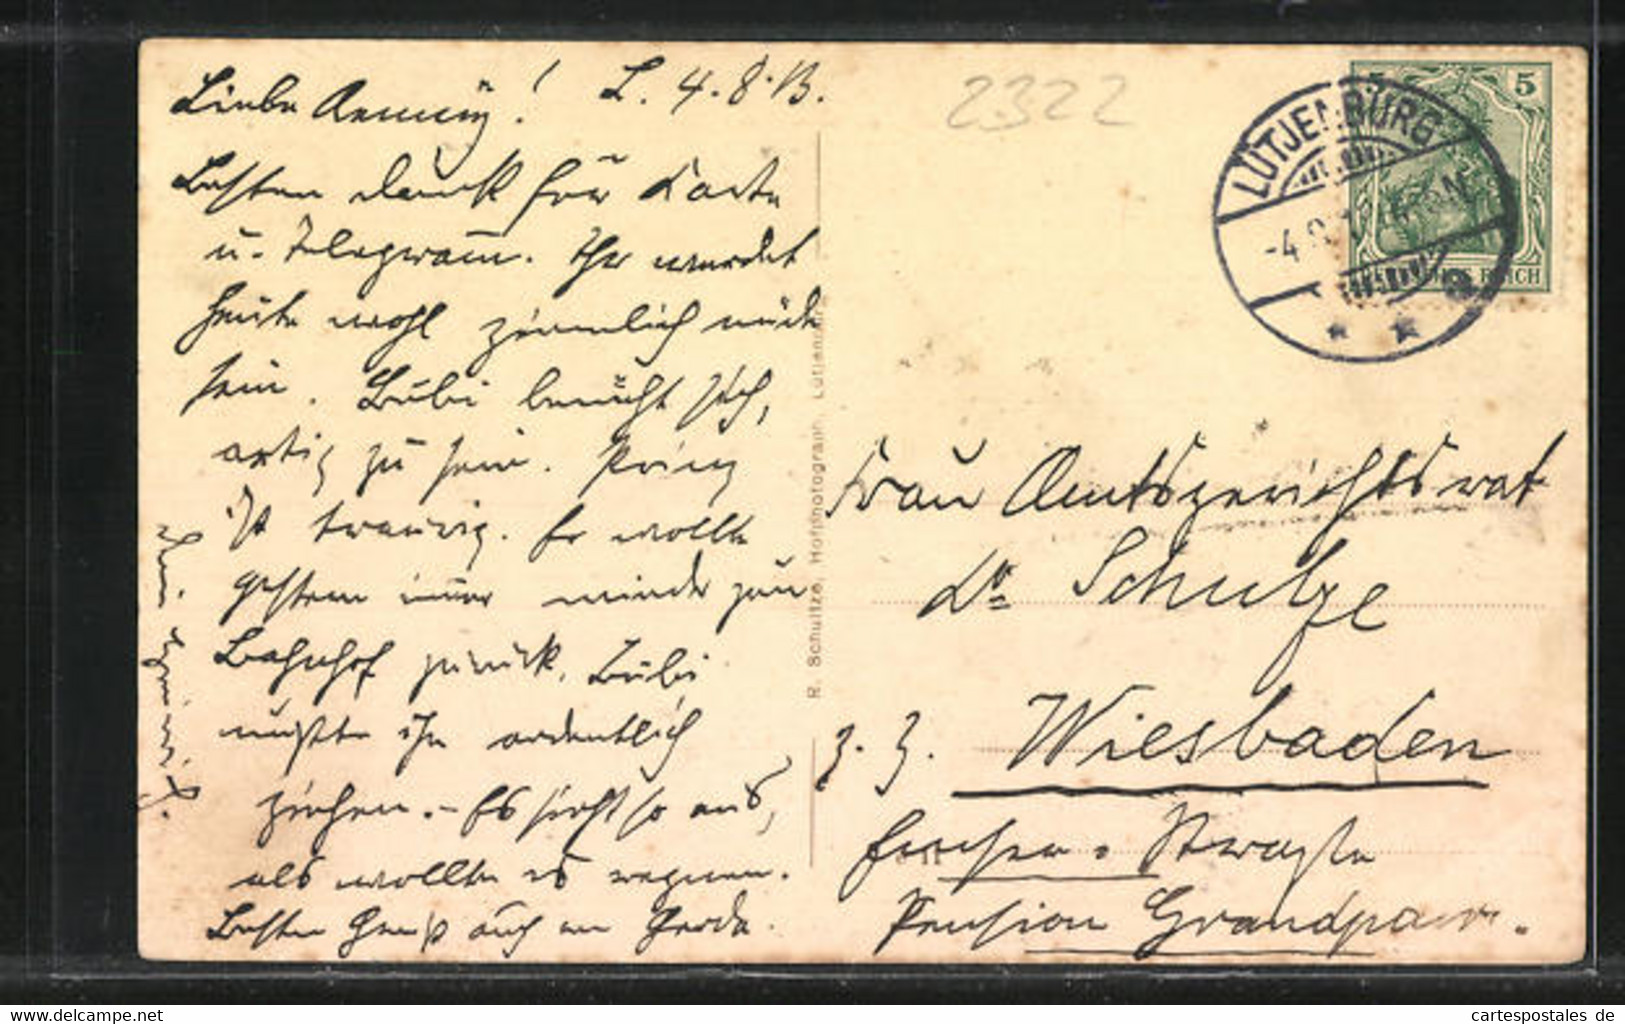 L. 4.8.13.
Liebe Aenning!
Besten Dank für Karte
u. Telegramm. Ihr werdet
heute wohl ziemlich müde
sein. Bubi bemüht sich,
artig zu sein. Prinz
ist traurig. Er wollte
gestern immer wieder zum
Bahnhof zurück. Bubi
mußte ihn ordentlich
ziehen. – Es sieht so aus,
als wollte es regnen.
Besten Gruß auch an Gerda.
2322
LÜTJENBURG
-4.8.
5
REICH
R. Schultze, Hofphotograph, Lütjenburg
Frau Amtsgerichtsrat
Dr Schulze
z. Z. Wiesbaden
Straße
Pension Grandpair.
www.cartespostales.de
cartespostales de